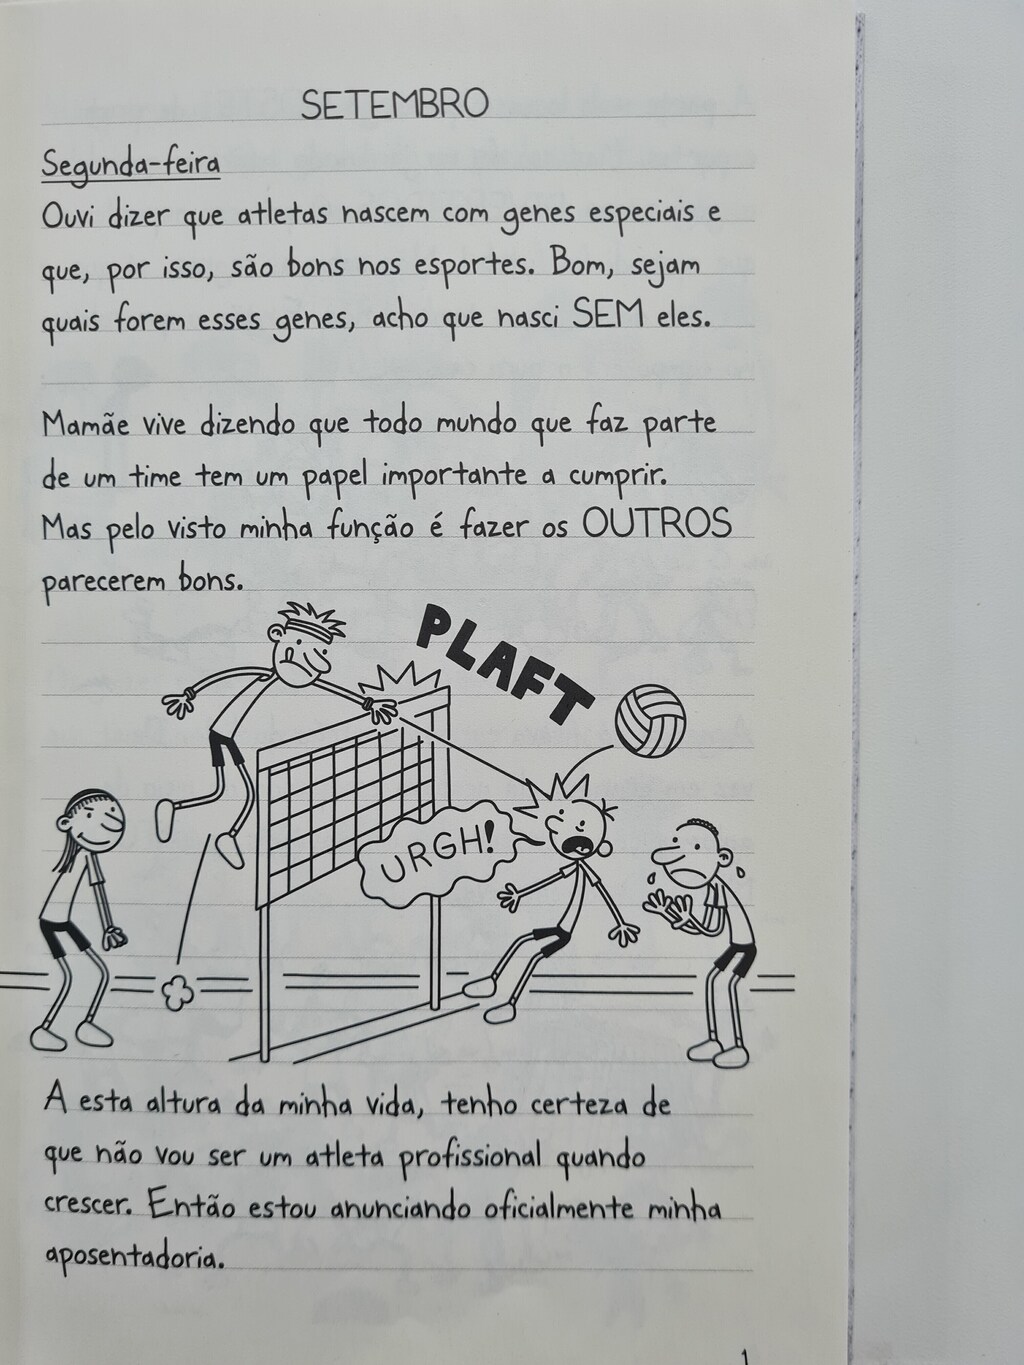 SETEMBRO
Segunda-feira
Ouvi dizer que atletas nascem com genes especiais e
que, por isso, são bons nos esportes. Bom, sejam
quais forem esses genes, acho que nasci SEM eles.
Mamãe vive dizendo que todo mundo que faz parte
de um time tem um papel importante a cumprir.
Mas pelo visto minha função é fazer os OUTROS
parecerem bons.
PLAFT
URGH!
A esta altura da minha vida, tenho certeza de
que não vou ser um atleta profissional quando
crescer. Então estou anunciando oficialmente minha
aposentadoria.
1